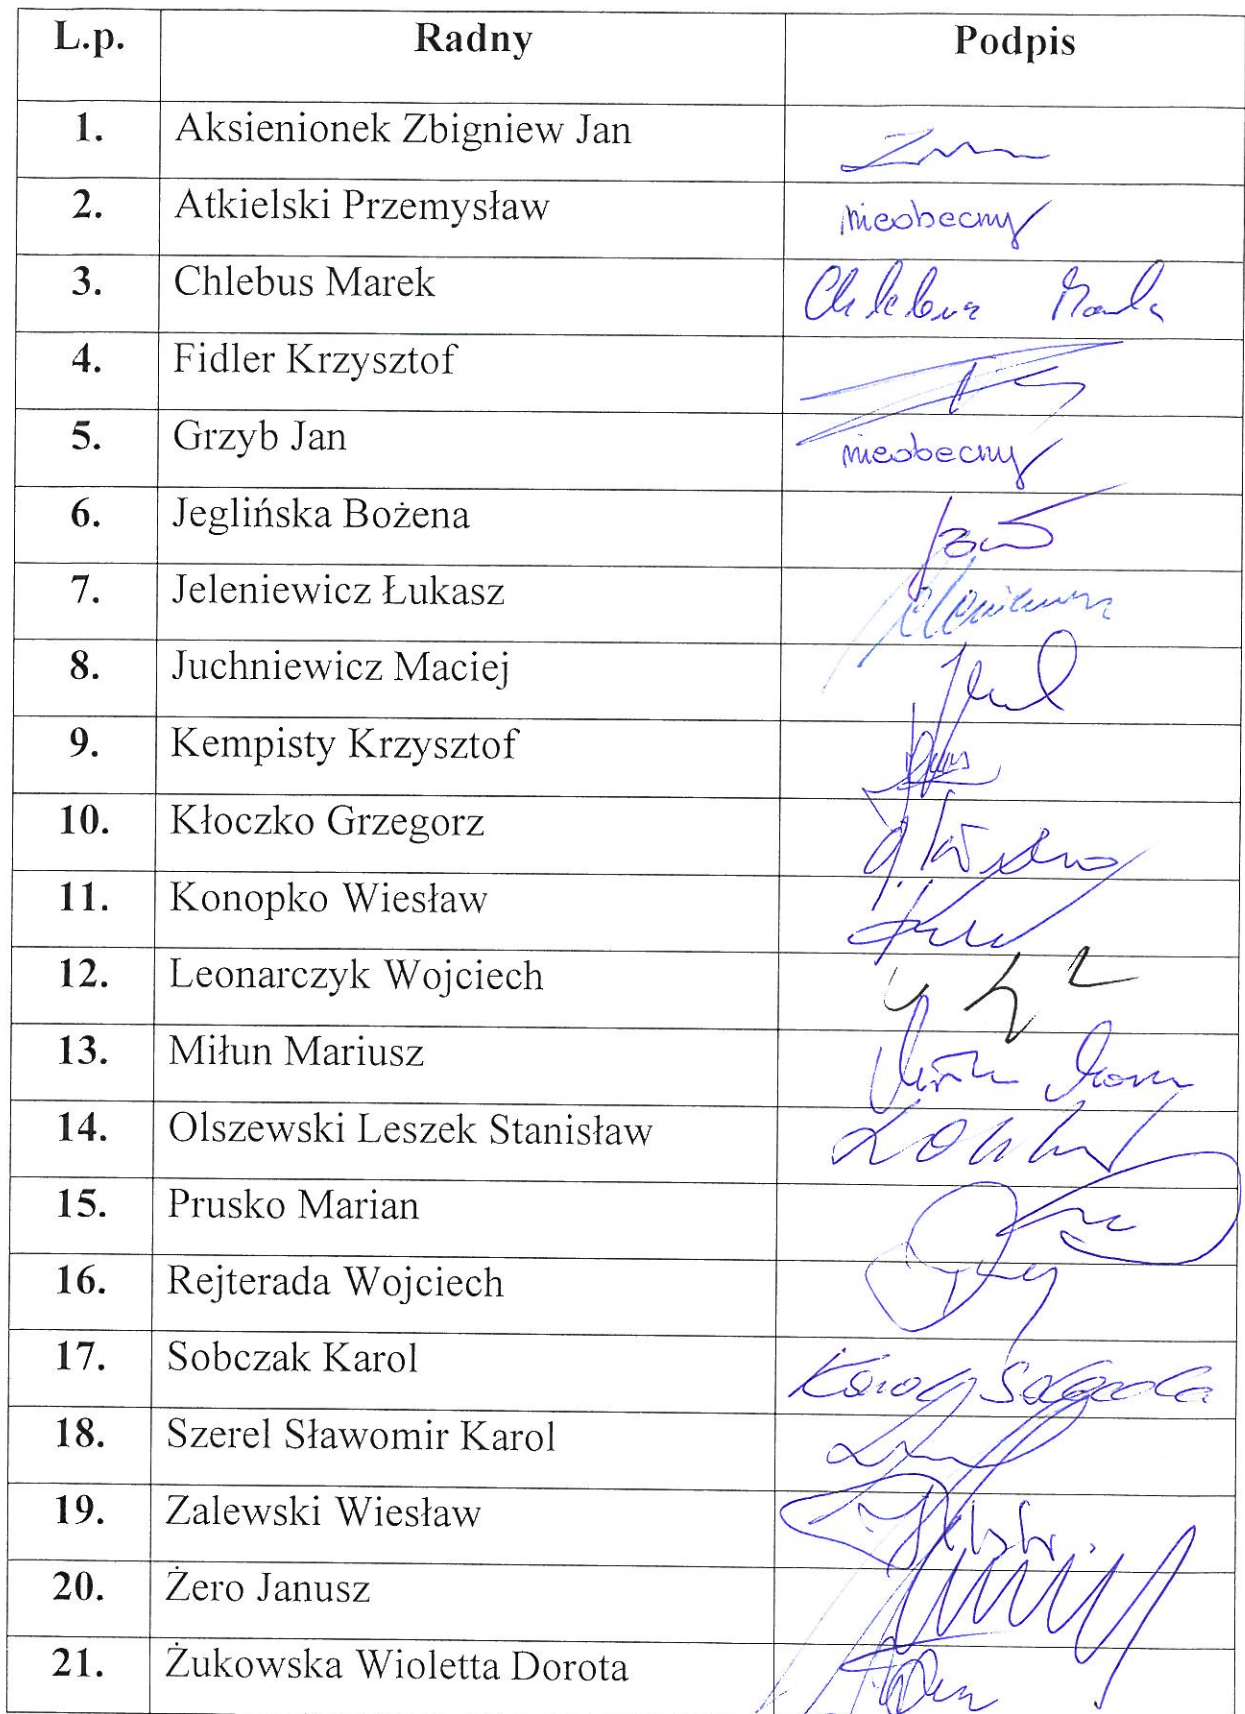 L.p. Radny Podpis
1. Aksienionek Zbigniew Jan
2. Atkielski Przemysław nieobecny
3. Chlebus Marek Chlebus Marek
4. Fidler Krzysztof
5. Grzyb Jan nieobecny
6. Jeglińska Bożena
7. Jeleniewicz Łukasz
8. Juchniewicz Maciej
9. Kempisty Krzysztof
10. Kłoczko Grzegorz
11. Konopko Wiesław
12. Leonarczyk Wojciech
13. Miłun Mariusz
14. Olszewski Leszek Stanisław
15. Prusko Marian
16. Rejterada Wojciech
17. Sobczak Karol Karol
18. Szerel Sławomir Karol
19. Zalewski Wiesław
20. Żero Janusz
21. Żukowska Wioletta Dorota